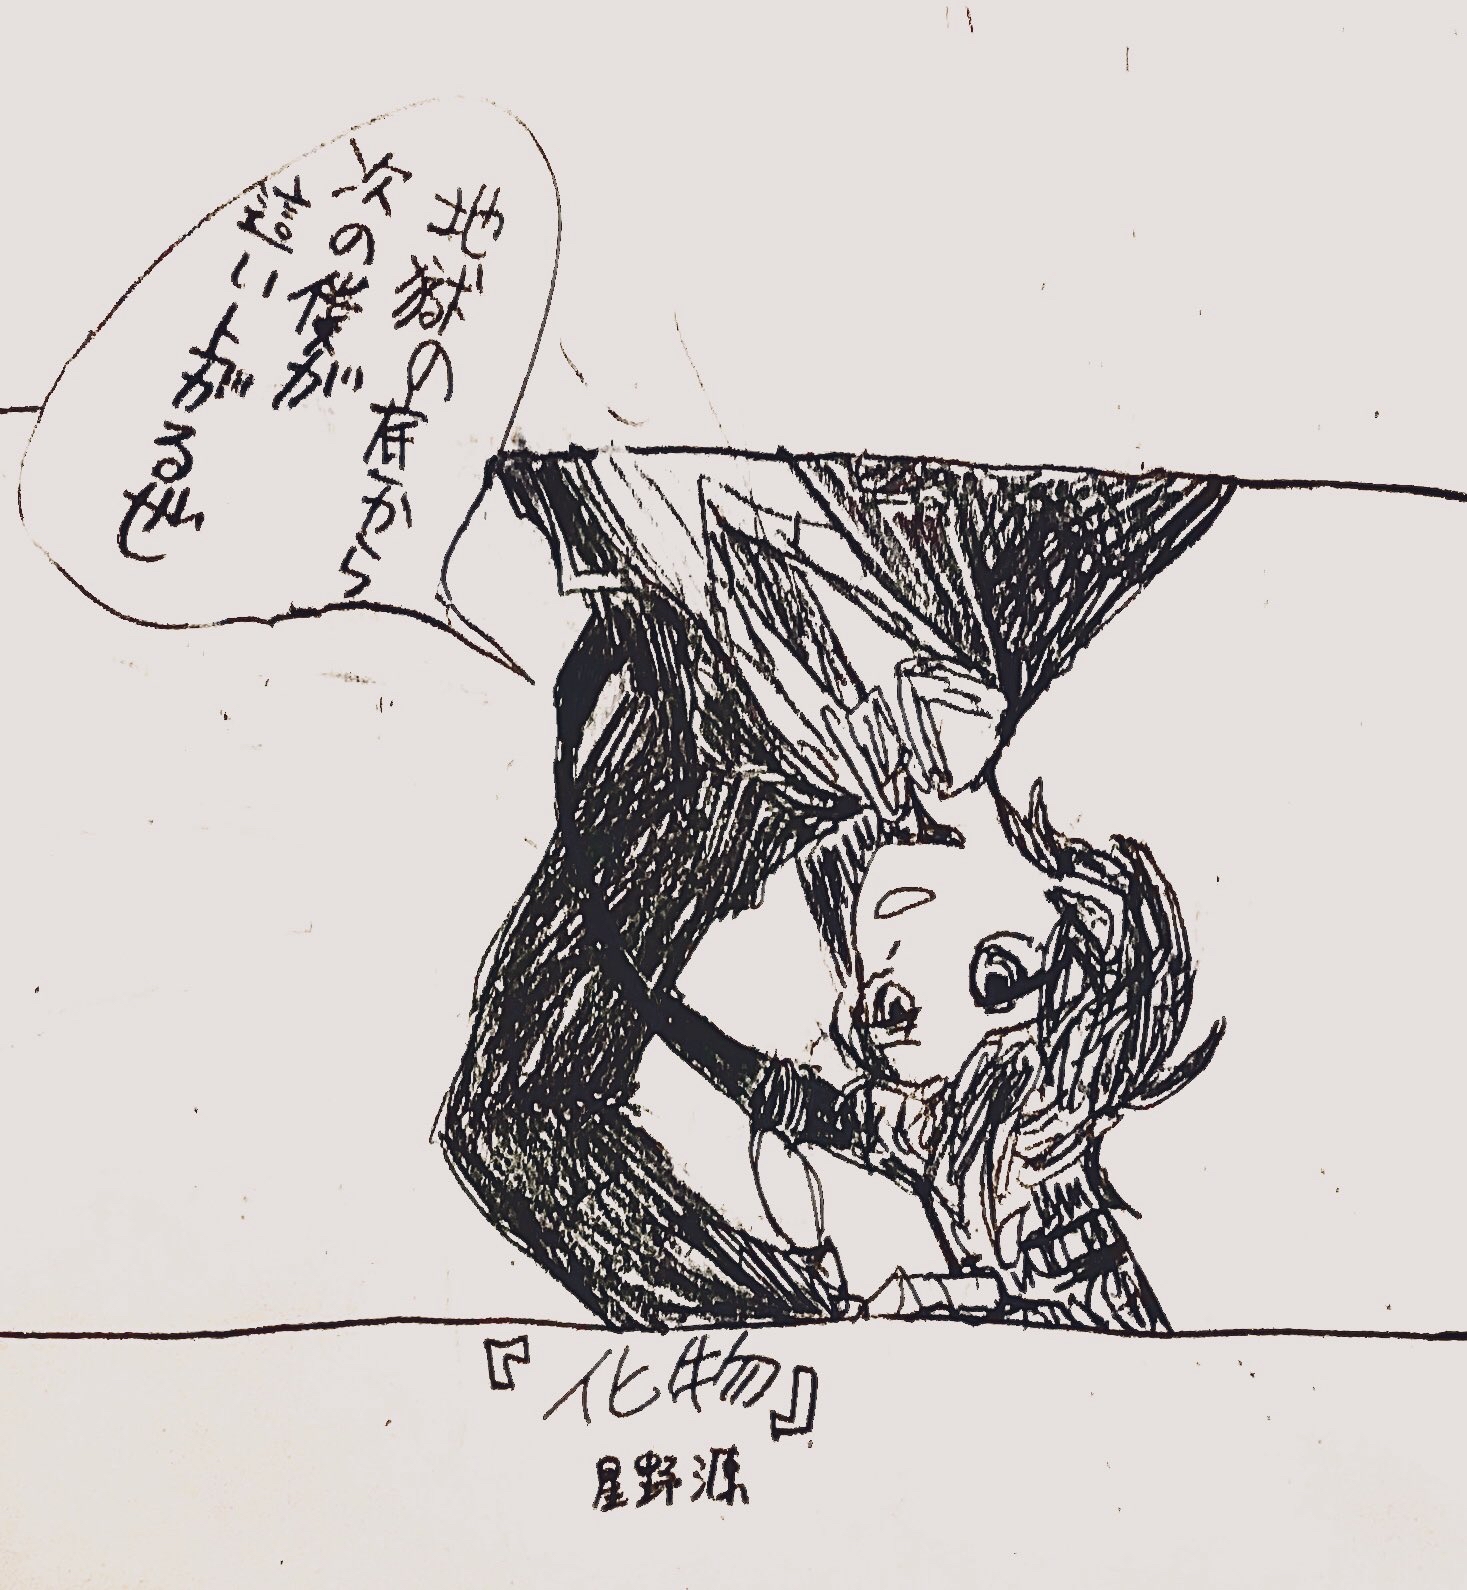 地獄の底から
次の僕が
這い上がるぜ
『化物』
星野源